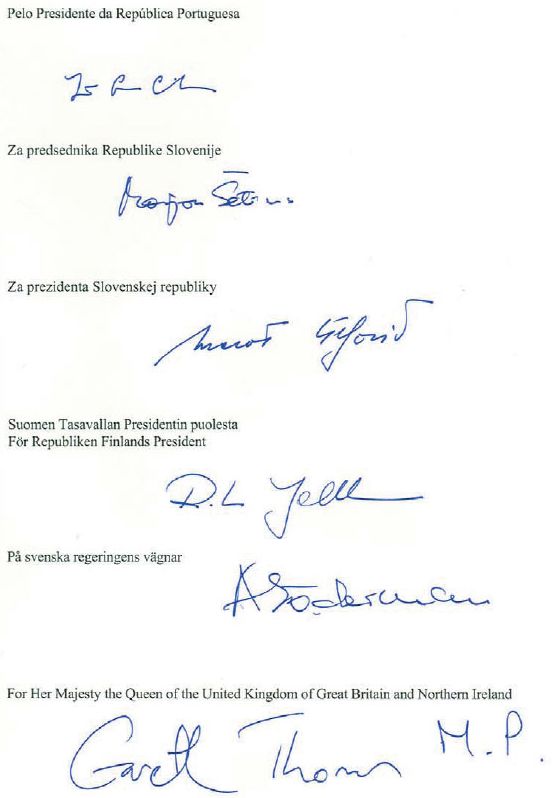 Pelo Presidente da República Portuguesa
Za predsednika Republike Slovenije
Za prezidenta Slovenskej republiky
Suomen Tasavallan Presidentin puolesta
För Republiken Finlands President
På svenska regeringens vägnar
A Söderman
For Her Majesty the Queen of the United Kingdom of Great Britain and Northern Ireland
Gareth Thomas M.P.